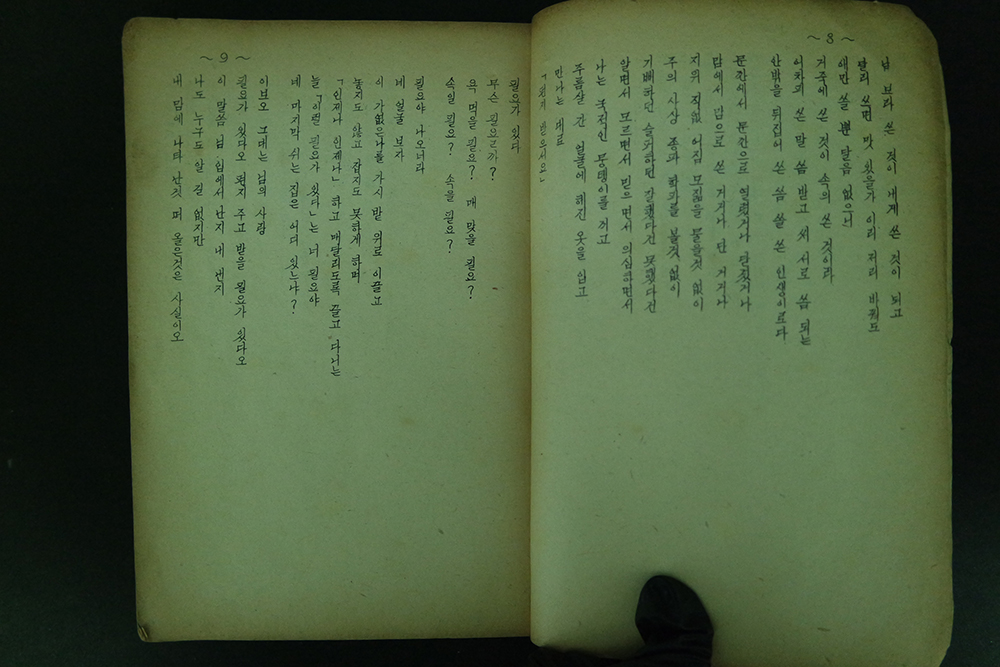 ~8~
님 보라 쓴 것이 내게 쓴 것이 되고
달리 쓰면 맛 있을가 이리 저리 바꿔도
애만 쓸 뿐 달음 없으니
거죽에 쓴 것이 속의 쓴 것이라
어차피 쓴 말 씀 받고 써 서로 씀 되는
안밖을 뒤집어 쓴 씀 쓸 쓴 인생이로다
문깐에서 문깐으로 열렸거나 닫졌거나
담에서 담으로 쓴 거거나 단 거거나
지위 직없 어짐 모짊을 물을것 없이
주의 사상 종과 학과를 볼것 없이
기뻐하던 슬퍼하던 잘했다건 못했다건
알면서 모르면서 믿으면서 의심하면서
나는 녹진인 몽탱이를 끼고
주름살 간 얼굴에 해진 옷을 입고
만나는 대로
~9~
필요가 있다
무슨 필요르까?
욕 먹을 필요? 매 맞을 필요?
속일 필요? 속을 필요?
필요야 나오너라
네 얼굴 보자
이 가없은 나를 가시 밭 위로 이끌고
놓지도 않고 갑지도 못하게 하며
「인제나 인제나」 하고 매달리도록 끌고 다니는
늘 「이런 필요가 있다」는 너 필요야
네 마지막 쉬는 집은 어디 있느냐?
이브오 그대는 님의 사랑
필요가 있다오 편지 주고 받을 필요가 있다오
이 말씀 님 입에서 난지 내 낸지
나도 누구도 알 길 없지만
내 맘에 나타 난것 떠 올은것은 사실이오